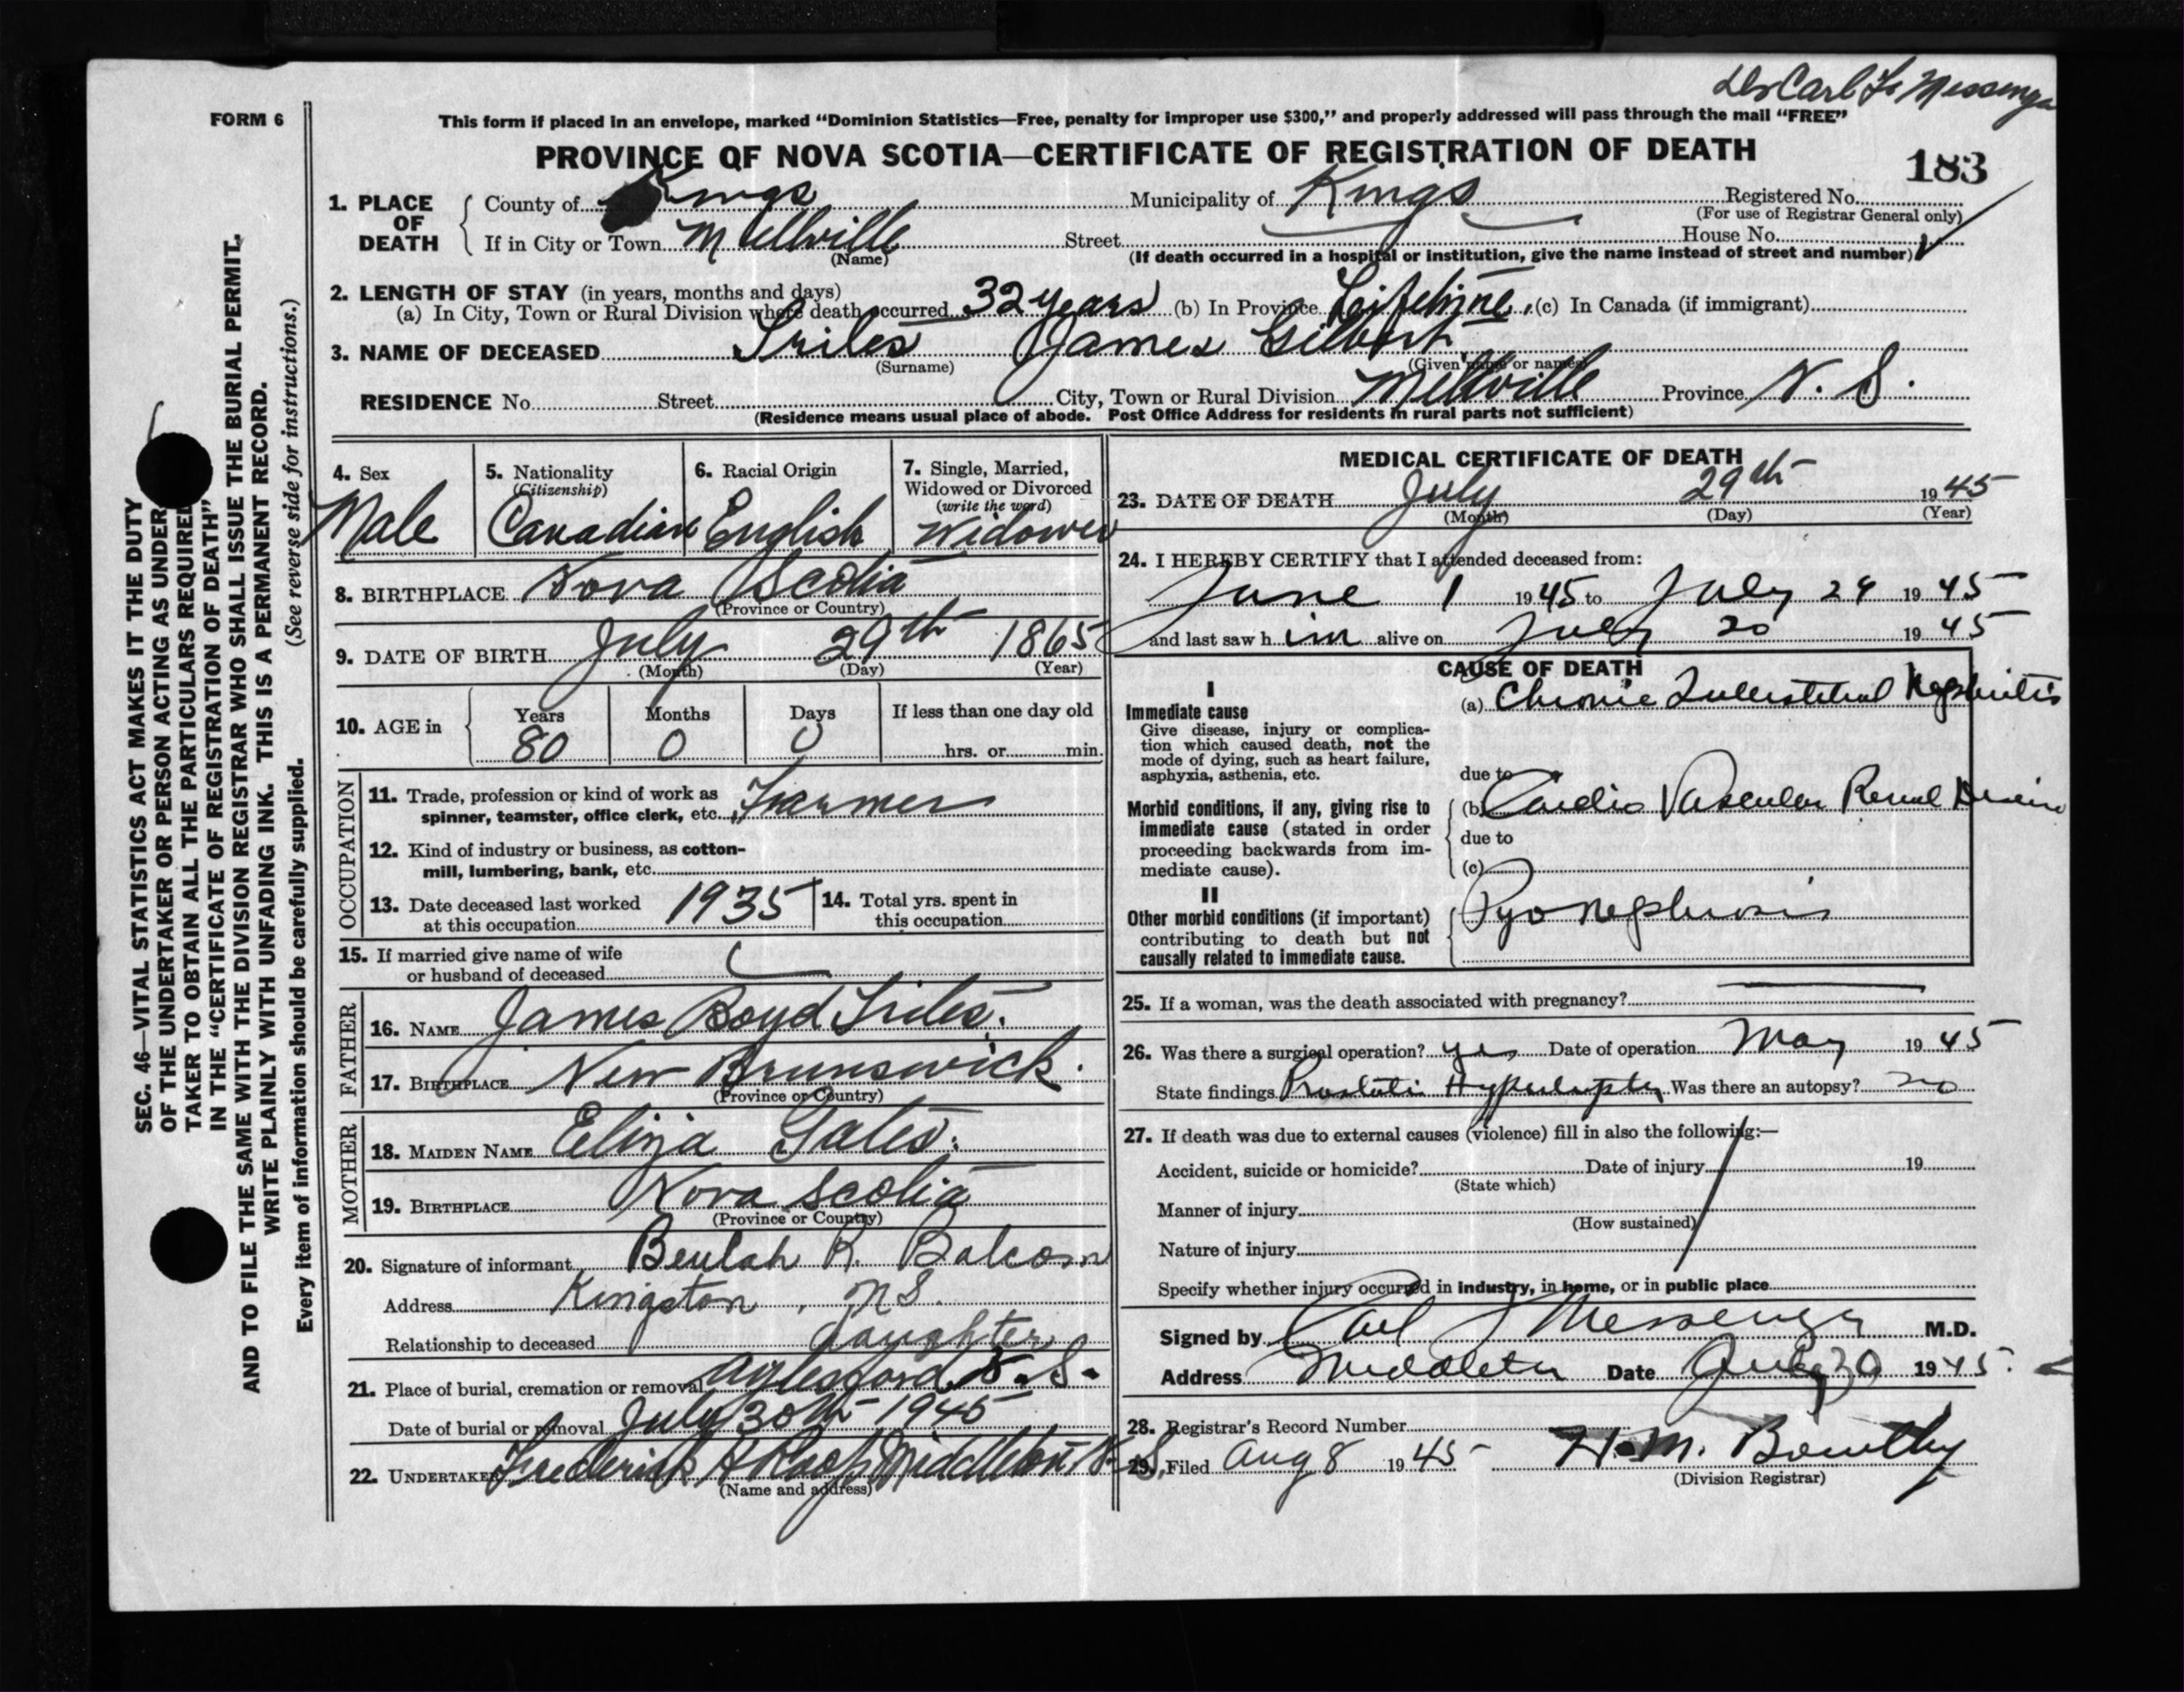 Dr Carl L. Messenger
FORM 6
This form if placed in an envelope, marked “Dominion Statistics—Free, penalty for improper use $300,” and properly addressed will pass through the mail “FREE”
PROVINCE OF NOVA SCOTIA—CERTIFICATE OF REGISTRATION OF DEATH
183
1. PLACE OF DEATH
County of Kings Municipality of Kings Registered No.
(For use of Registrar General only)
If in City or Town Millville Street House No.
(Name)
(If death occurred in a hospital or institution, give the name instead of street and number)
2. LENGTH OF STAY (in years, months and days)
(a) In City, Town or Rural Division where death occurred 32 years (b) In Province Lifetime (c) In Canada (if immigrant)
3. NAME OF DECEASED James Gilbert
(Surname) (Given name or names)
RESIDENCE No. Street City, Town or Rural Division Millville Province N. S.
(Residence means usual place of abode. Post Office Address for residents in rural parts not sufficient)
4. Sex
Male
5. Nationality
(Citizenship)
Canadian
6. Racial Origin
English
7. Single, Married,
Widowed or Divorced
(write the word)
Widower
8. BIRTHPLACE Nova Scotia
(Province or Country)
9. DATE OF BIRTH July 29th 1865
(Month) (Day) (Year)
10. AGE in
Years Months Days If less than one day old
80 0 0 hrs. or min.
OCCUPATION
11. Trade, profession or kind of work as
spinner, teamster, office clerk, etc. Farmer
12. Kind of industry or business, as cotton-
mill, lumbering, bank, etc.
13. Date deceased last worked
at this occupation 1935
14. Total yrs. spent in
this occupation
15. If married give name of wife
or husband of deceased
FATHER
16. NAME James Boyd
17. BIRTHPLACE New Brunswick.
(Province or Country)
MOTHER
18. MAIDEN NAME Eliza Gates.
19. BIRTHPLACE Nova Scotia
(Province or Country)
20. Signature of informant Beulah R. Balcom
Address Kingston, N S.
Relationship to deceased daughter
21. Place of burial, cremation or removal Aylesford N. S.
Date of burial or removal July 30th 1945
22. UNDERTAKER Frederick A Roop Middleton N. S.
(Name and address)
MEDICAL CERTIFICATE OF DEATH
23. DATE OF DEATH July 29th 1945
(Month) (Day) (Year)
24. I HEREBY CERTIFY that I attended deceased from:
June 1 1945 to July 29 1945
and last saw him alive on July 1945
CAUSE OF DEATH
I
Immediate cause
Give disease, injury or complica-
tion which caused death, not the
mode of dying, such as heart failure,
asphyxia, asthenia, etc.
(a) Chronic Interstitial Nephritis
due to
Morbid conditions, if any, giving rise to
immediate cause (stated in order
proceeding backwards from im-
mediate cause).
(b) Cardio Vascular Renal Disease
due to
(c)
II
Other morbid conditions (if important)
contributing to death but not
causally related to immediate cause.
Pyonephrosis
25. If a woman, was the death associated with pregnancy?
26. Was there a surgical operation? yes Date of operation May 1945
State findings Was there an autopsy? no
27. If death was due to external causes (violence) fill in also the following:—
Accident, suicide or homicide? Date of injury 19
(State which)
Manner of injury
(How sustained)
Nature of injury
Specify whether injury occurred in industry, in home, or in public place
Signed by Carl L Messenger M.D.
Address Middleton Date July 30 1945.
28. Registrar's Record Number
29. Filed Aug 8 1945 H. M.
(Division Registrar)
SEC. 46—VITAL STATISTICS ACT MAKES IT THE DUTY
OF THE UNDERTAKER OR PERSON ACTING AS UNDER
TAKER TO OBTAIN ALL THE PARTICULARS REQUIRED
IN THE “CERTIFICATE OF REGISTRATION OF DEATH”
AND TO FILE THE SAME WITH THE DIVISION REGISTRAR WHO SHALL ISSUE THE BURIAL PERMIT.
WRITE PLAINLY WITH UNFADING INK. THIS IS A PERMANENT RECORD.
(See reverse side for instructions.)
Every item of information should be carefully supplied.